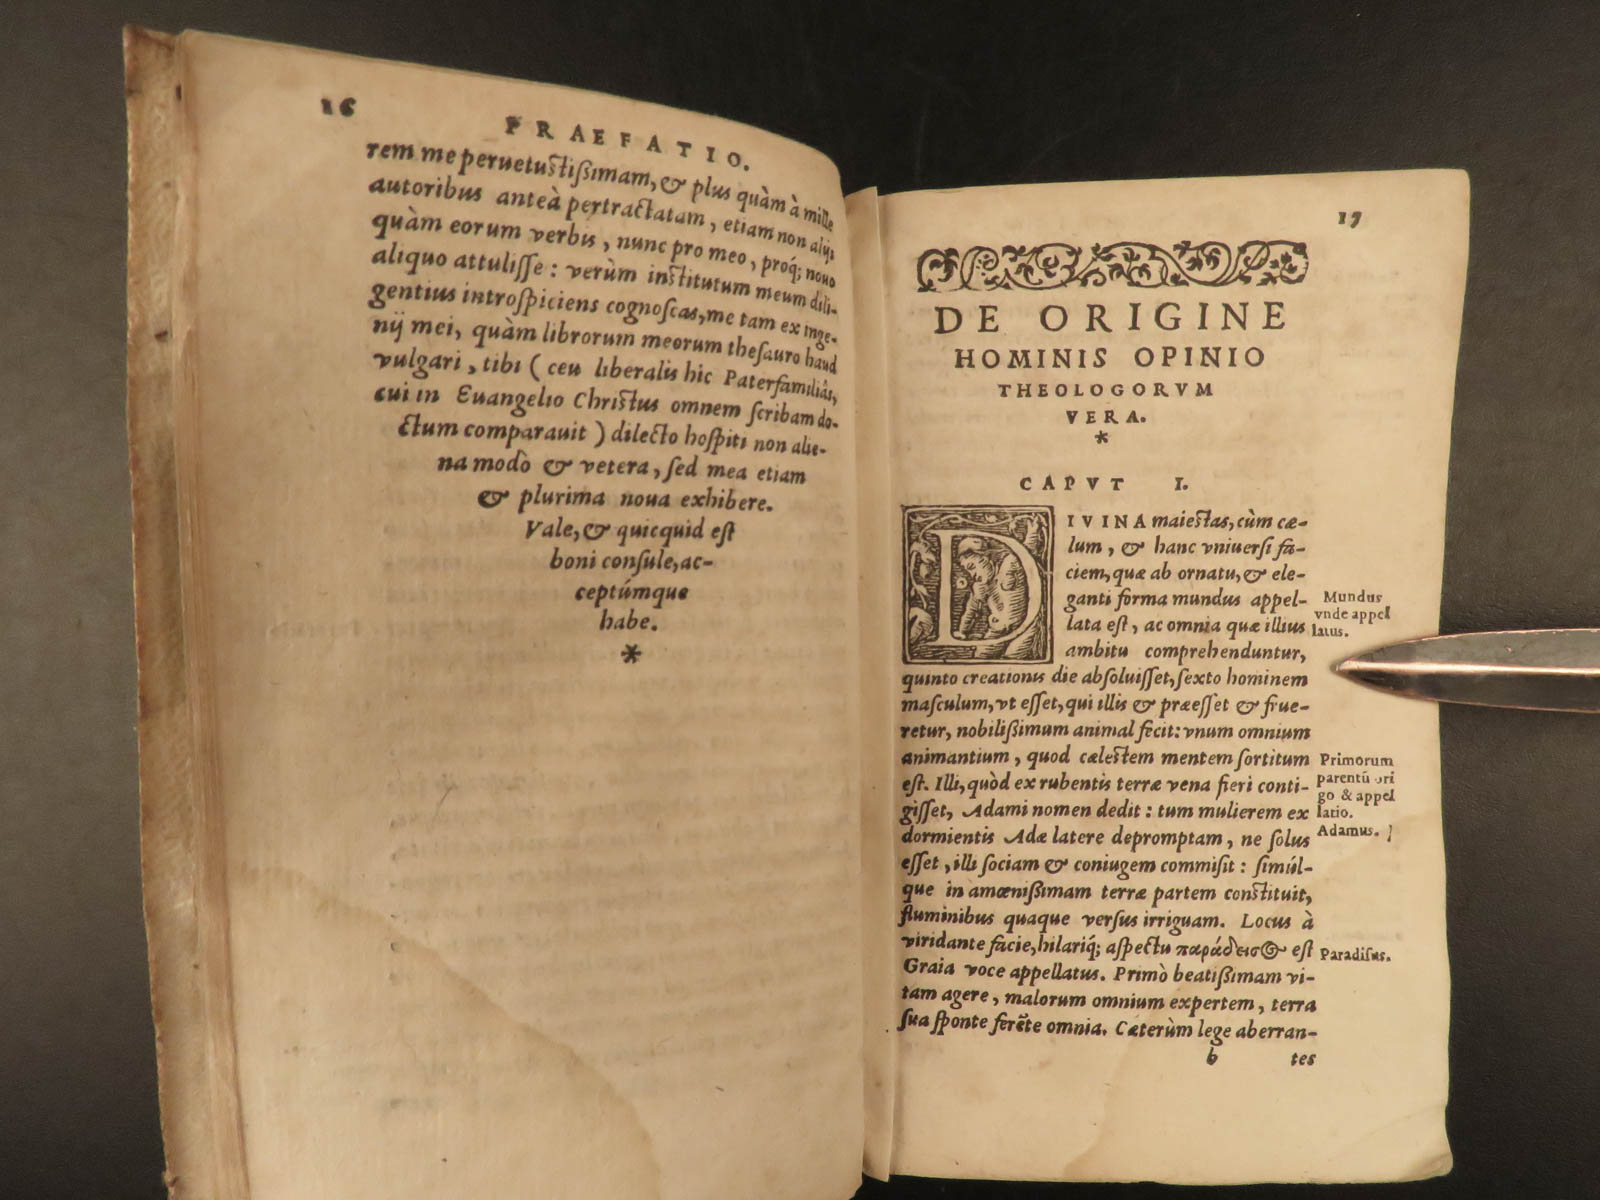 16
PRAEFATIO.
rem me peruetustißimam, & plus quàm à mille
autoribus anteà pertractatam, etiam non alijs
quàm eorum verbis, nunc pro meo, proq́; nouo
aliquo attulisse: verùm institutum meum dili-
gentius introspiciens cognoscas, me tam ex inge-
nij mei, quàm librorum meorum thesauro haud
vulgari, tibi (ceu liberalis hic Paterfamiliâs,
cui in Euangelio Christus omnem scribam do-
ctum comparauit) dilecto hospiti non alie-
na modò & vetera, sed mea etiam
& plurima noua exhibere.
Vale, & quicquid est
boni consule, ac-
ceptúmque
habe.
*
17
DE ORIGINE
HOMINIS OPINIO
THEOLOGORVM
VERA.
*
CAPVT I.
DIVINA maiestas, cùm cæ-
lum, & hanc vniuersi fa-
ciem, quæ ab ornatu, & ele-
ganti forma mundus appel-
lata est, ac omnia quæ illius
ambitu comprehenduntur,
quinto creationis die absoluisset, sexto hominem
masculum, vt esset, qui illis & præesset & frue-
retur, nobilißimum animal fecit: vnum omnium
animantium, quod cælestem mentem sortitum
est. Illi, quòd ex rubentis terræ vena fieri conti-
gisset, Adami nomen dedit: tum mulierem ex
dormientis Adæ latere depromptam, ne solus
esset, illi sociam & coniugem commisit: simúl-
que in amœnißimam terræ partem constituit,
fluminibus quaque versus irriguam. Locus à
viridante facie, hilariq́; aspectu παράδεισος est
Graia voce appellatus. Primò beatißimam vi-
tam agere, malorum omnium expertem, terra
sua sponte ferẽte omnia. Cæterùm lege aberran-
b tes
Mundus
vnde appel
latus.
Primorum
parentũ ori
go & appel
latio.
Adamus.
Paradisus.